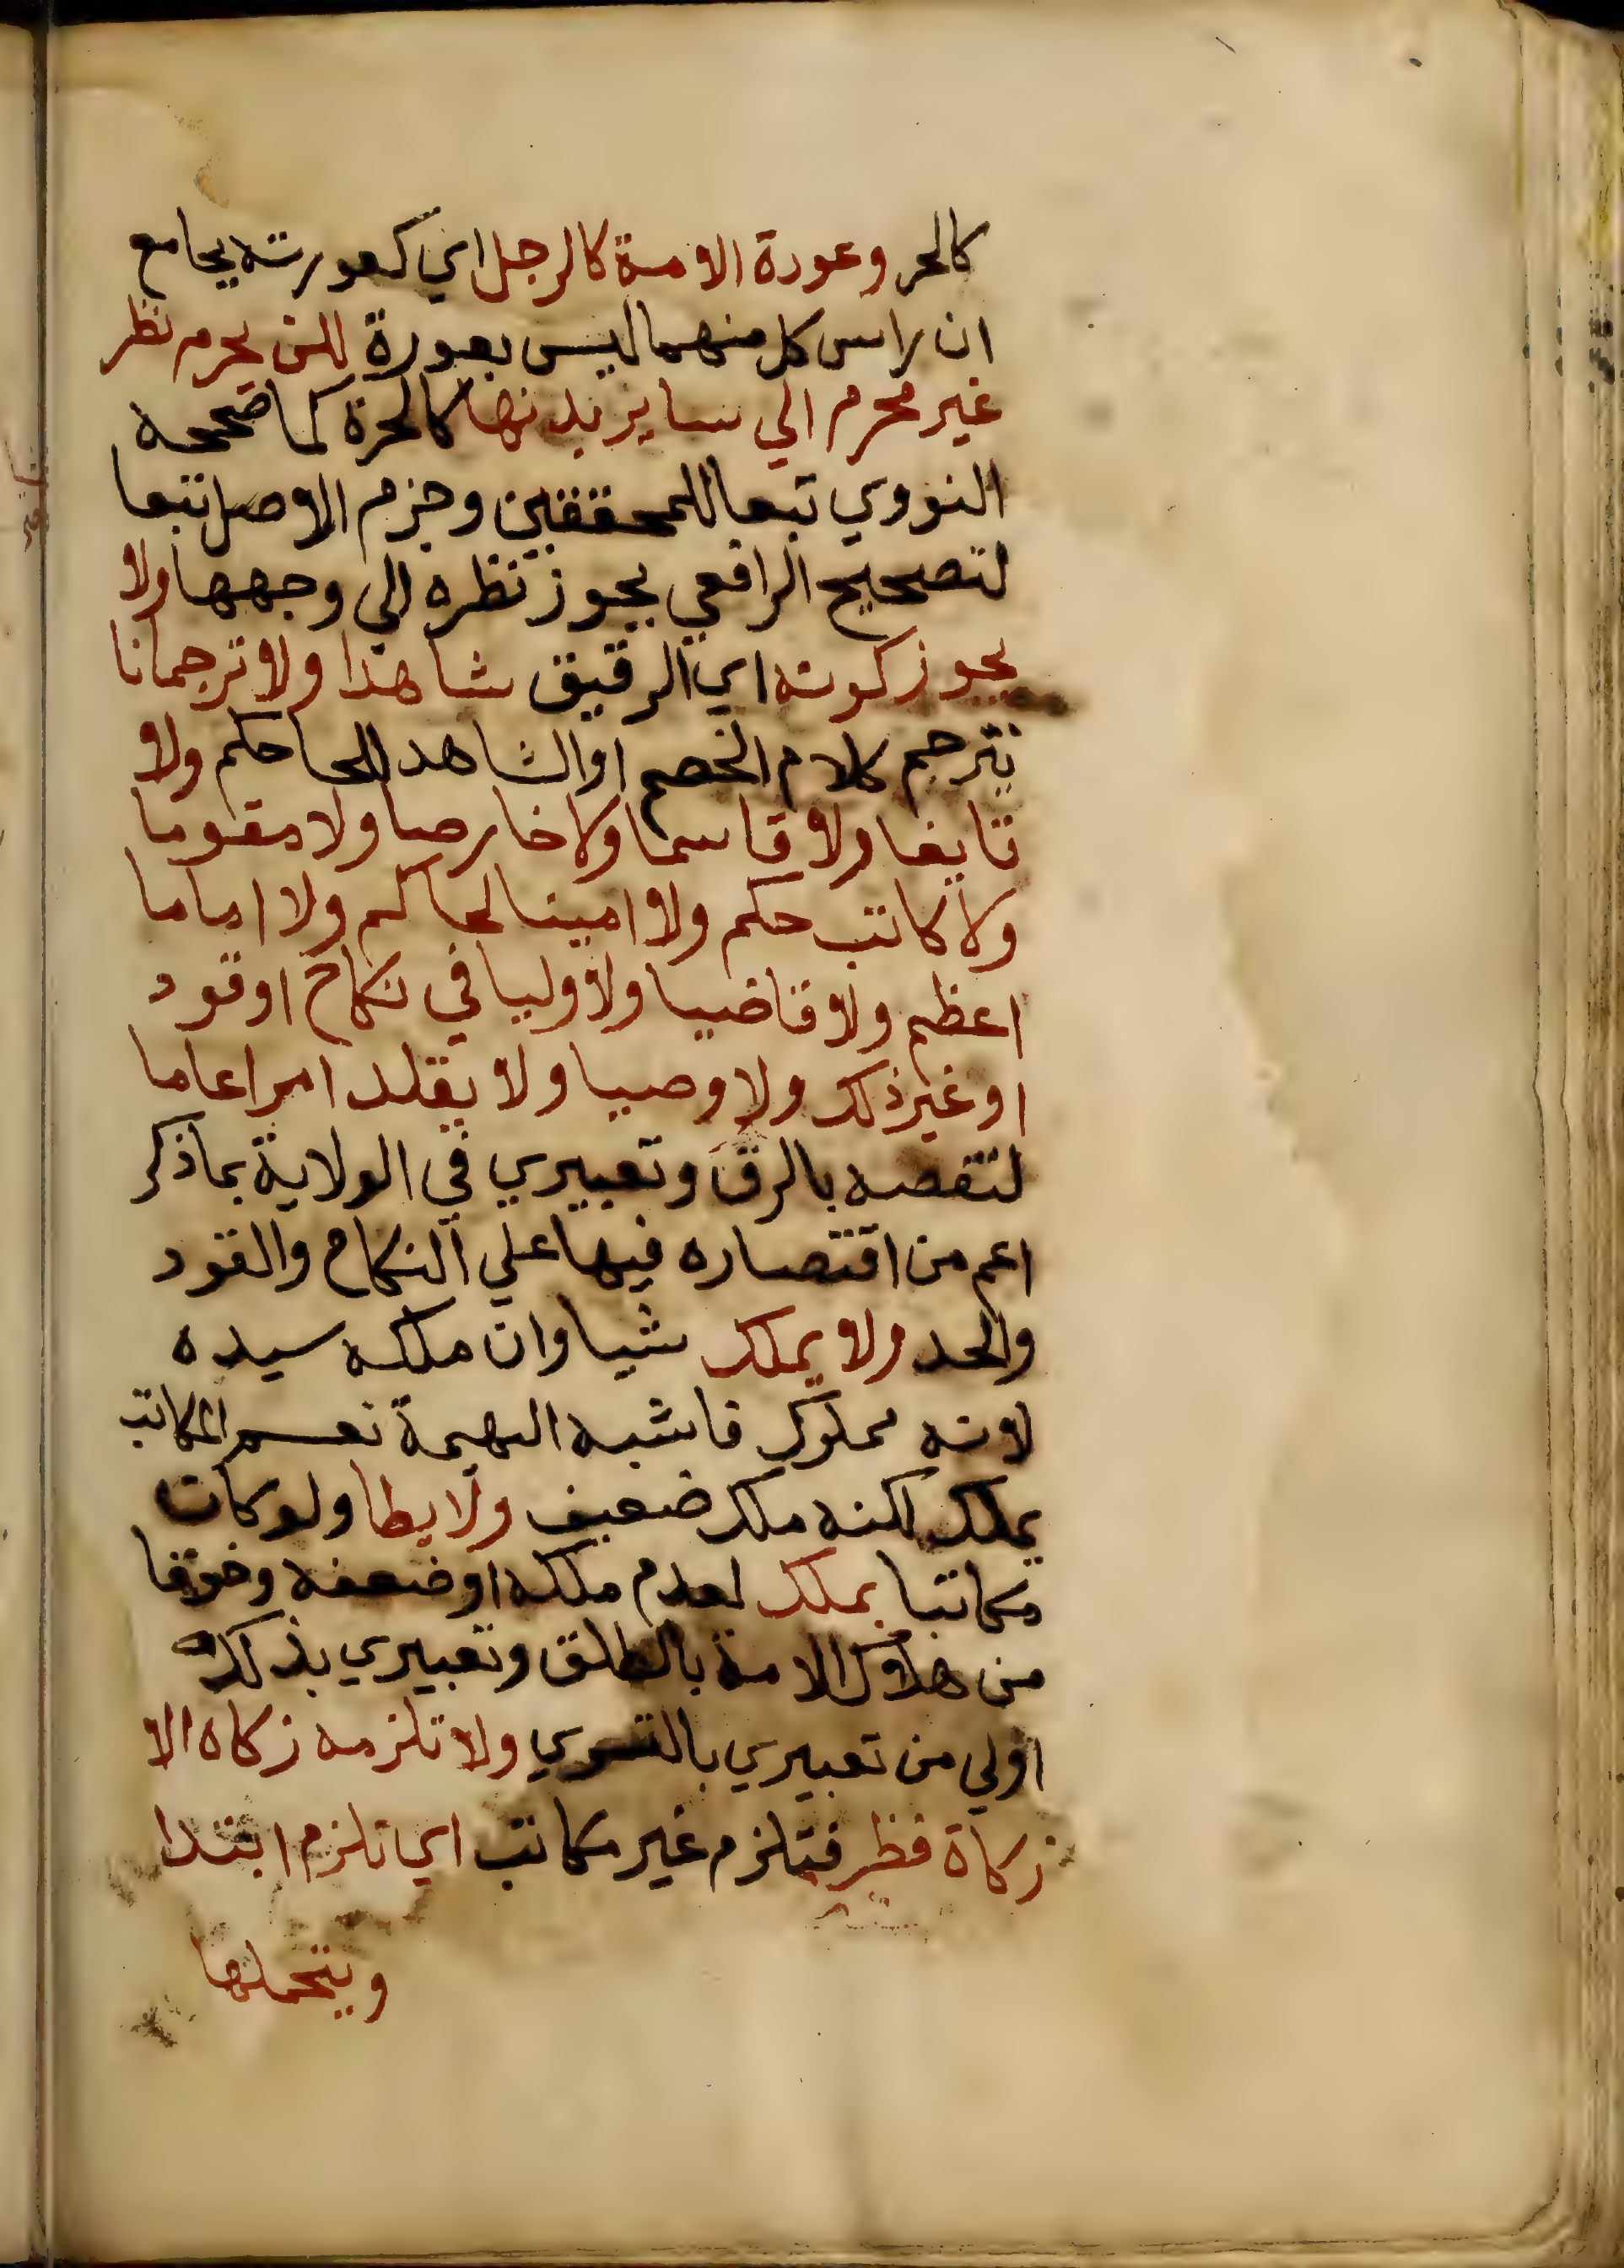 كالحر وعورة الامة كالرجل اي كعورته بجامع
ان راس كل منهما ليس بعورة لكن يحرم نظر
غير محرم الي ساير بدنها كالحرة كما صححه
النووي تبعا للمحققين وجزم الاصل تبعا
لتصحيح الرافعي بجواز نظره الي وجهها ولا
يجوز كونه اي الرقيق شاهدا ولا ترجمانا
يترجم كلام الخصم او الشاهد للحاكم ولا
قايفا ولا قاسما ولا خارصا ولا مقوما
ولا كاتب حكم ولا امينا لحاكم ولا اماما
اعظم ولا قاضيا ولا وليا في نكاح او قود
او غير ذلك ولا وصيا ولا يقلد امرا عاما
لنقصه بالرق وتعبيري في الولاية بما ذكر
اعم من اقتصاره فيها علي النكاح والقود
والحد ولا يملك شيا وان ملكه سيده
لانه مملوك فاشبه البهيمة نعم المكاتب
يملك لكنه ملك ضعيف ولا يطا ولو كان
مكاتبا بملك لعدم ملكه او ضعفه وخوفا
من هلاك الامة بالطلق وتعبيري بذلك
اولي من تعبيري بالتسري ولا تلزمه زكاه الا
زكاة فطر فتلزم غير مكاتب اي تلزم ابتدا
ويتحملها